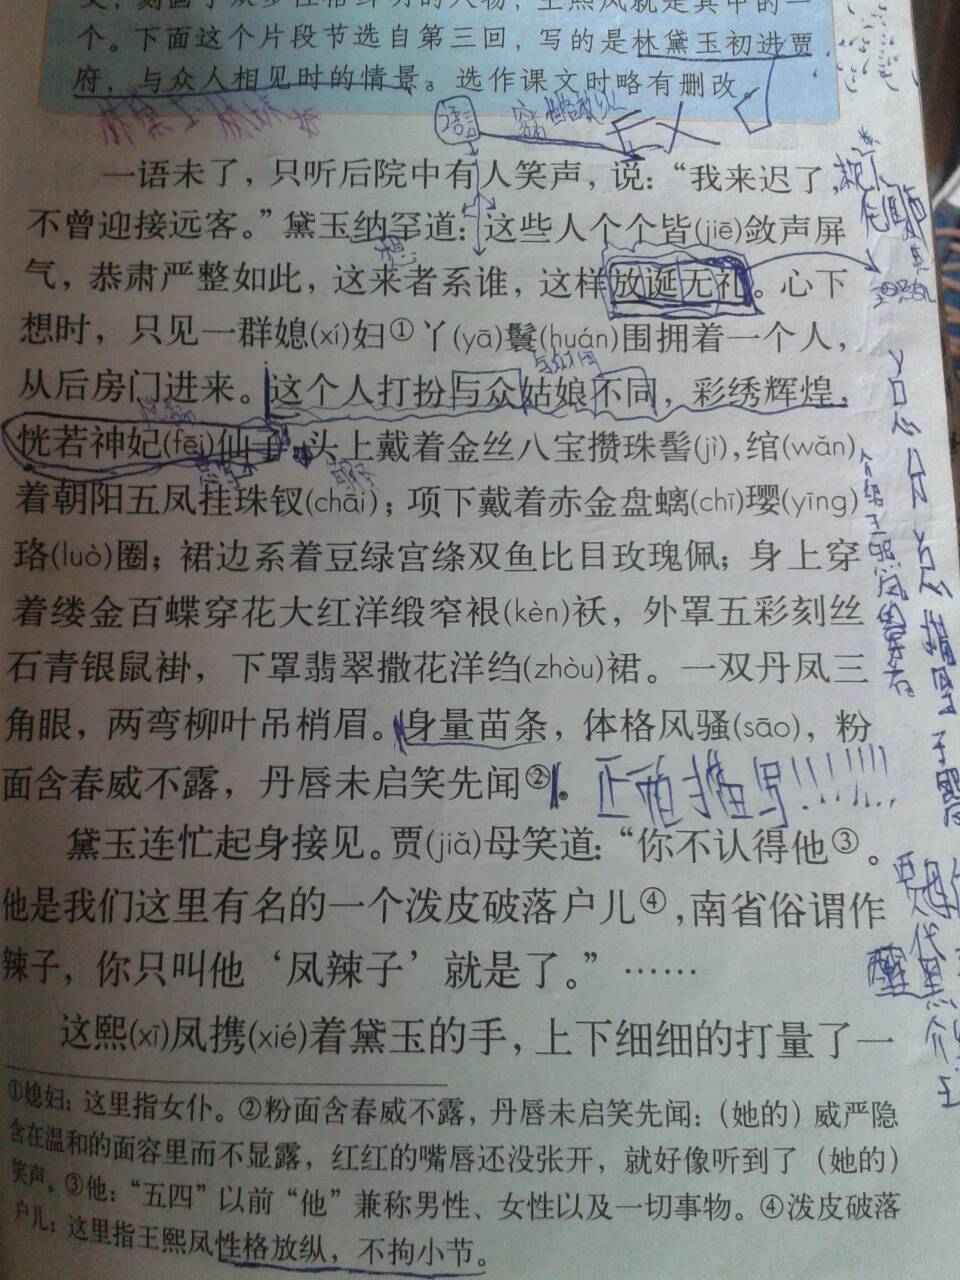 个。下面这个片段节选自第三回，写的是林黛玉初进贾
府，与众人相见时的情景。选作课文时略有删改。
一语未了，只听后院中有人笑声，说：“我来迟了，
不曾迎接远客。”黛玉纳罕道：这些人个个皆(jiē)敛声屏
气，恭肃严整如此，这来者系谁，这样放诞无礼。心下
想时，只见一群媳(xí)妇①丫(yā)鬟(huán)围拥着一个人，
从后房门进来。这个人打扮与众姑娘不同，彩绣辉煌，
恍若神妃(fēi)仙子，头上戴着金丝八宝攒珠髻(jì)，绾(wǎn)
着朝阳五凤挂珠钗(chāi)；项下戴着赤金盘螭(chī)璎(yīng)
珞(luò)圈；裙边系着豆绿宫绦双鱼比目玫瑰佩；身上穿
着缕金百蝶穿花大红洋缎窄裉(kèn)袄，外罩五彩刻丝
石青银鼠褂，下罩翡翠撒花洋绉(zhòu)裙。一双丹凤三
角眼，两弯柳叶吊梢眉。身量苗条，体格风骚(sāo)，粉
面含春威不露，丹唇未启笑先闻②。
正面描写!!!!!!!
黛玉连忙起身接见。贾(jiǎ)母笑道：“你不认得他③。
他是我们这里有名的一个泼皮破落户儿④，南省俗谓作
辣子，你只叫他‘凤辣子’就是了。”……
这熙(xī)凤携(xié)着黛玉的手，上下细细的打量了一
①媳妇：这里指女仆。②粉面含春威不露，丹唇未启笑先闻：（她的）威严隐
含在温和的面容里而不显露，红红的嘴唇还没张开，就好像听到了（她的）
笑声。③他：“五四”以前“他”兼称男性、女性以及一切事物。④泼皮破落
户儿：这里指王熙凤性格放纵，不拘小节。